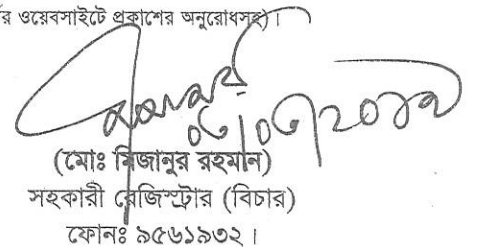 র ওয়েবসাইটে প্রকাশের অনুরোধসহ)।
(মোঃ মিজানুর রহমান)
সহকারী রেজিস্ট্রার (বিচার)
ফোনঃ ৯৫৬১৯৩২।